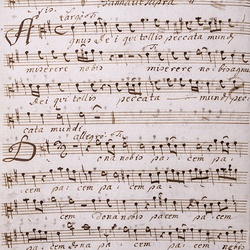 Osanna ut supra
largo
Agnus dei qui tollis peccata mundi
miserere nobis miserere nobis agnus
dei qui tollis peccata mundi pec
cata mundi
allegro
Dona nobis pacem pa
cem pacem pacem pa
cem Dona nobis pacem pacem
pacem dona pacem pa cem